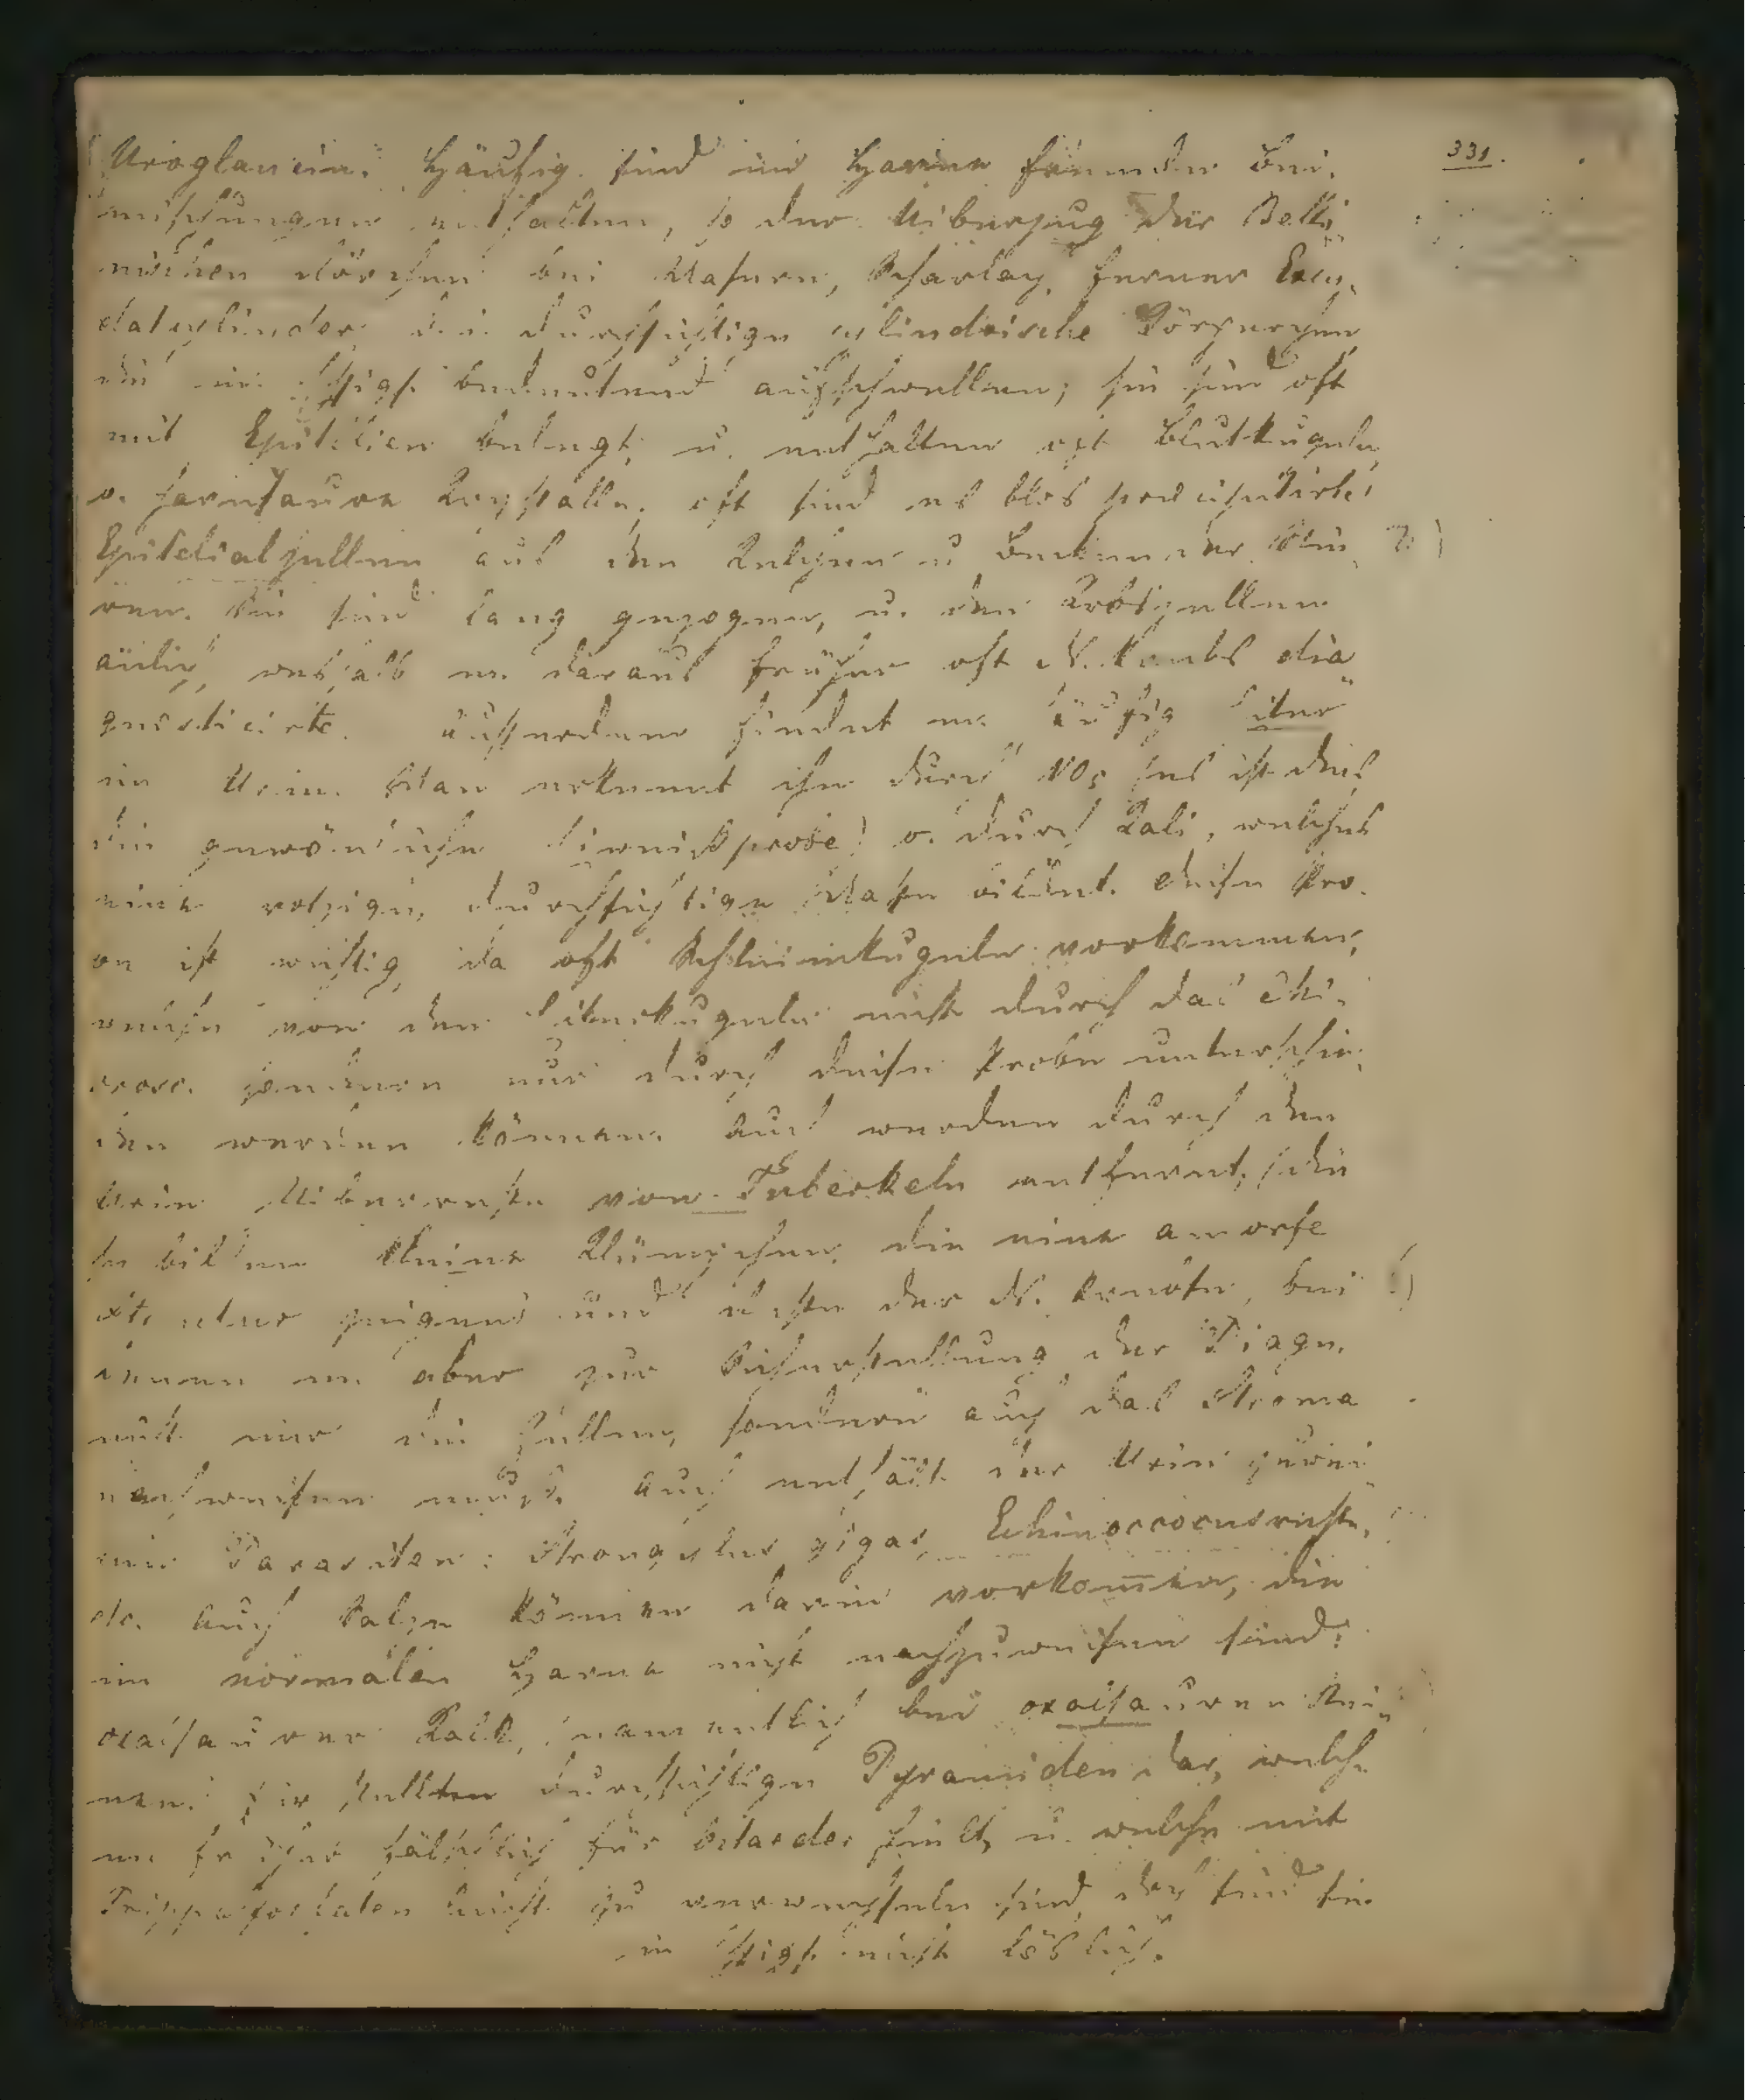 331.
Uroglaucin. Häufig sind im Harne fremde Bei-
mischungen enthalten, so der Uiberzug der Belli-
nischen Körchen bei Masern, Scharlach, ferner Exsu-
datcylinder, d. i. durchsichtige cylindrische Körperchen
die in Essigs. bedeutend aufschwellen; sie sind oft
mit Epitelien belegt, u. enthalten oft Blutkugeln
o. harnsaure Krystalle, oft sind es blos
Epitelialzellen aus den Kelchen u. Becken der Nie-
ren. Sie sind lang gezogen, u. den Krebszellen
änlich, weshalb m. daraus früher oft N. Krebs dia-
gnosticirte. Ausserdem findet m. häufig Eiter
im Urin. Man erkennt ihn durch NO5 (es ist dies
die gewönliche Eiweissprobe) o. durch Kali, welches
eine rotzige, durchsichtige Masse bildet. Diese Pro-
be ist wichtig, da oft Schleimkugeln vorkommen,
welche von den Eiterkugeln nicht durch das Mi-
crosc. sondern nur durch diese Probe unterschie-
den werden können. Auch werden durch den
Urin Uiberreste von Tuberkeln entfernt, die
so bilden kleine Klümpchen, die eine amorfe
zeigen und Reste der N. Krebse, bei
denen m. aber zur Sicherstellung der Diagn.
nicht nur die Zellen, sondern auch das Stroma
nachweisen muß. Auch enthält der Urin zuwei-
len Parasiten: Strongylus gigas, Echinococcusreste,
etc. Auch Salze können darin vorkommen, die
im normalen Harne nicht nachzuweisen sind:
oxalsaurer Kalk, namentlich bei oxalsauren Stei-
nen. Er stellt durchsichtige Pyramiden dar, welche
m. früher fälschlich für hielt, u. welche mit
Trippelfosfaten nicht zu verwechseln sind, doch sind sie
in Essigs. nicht löslich.